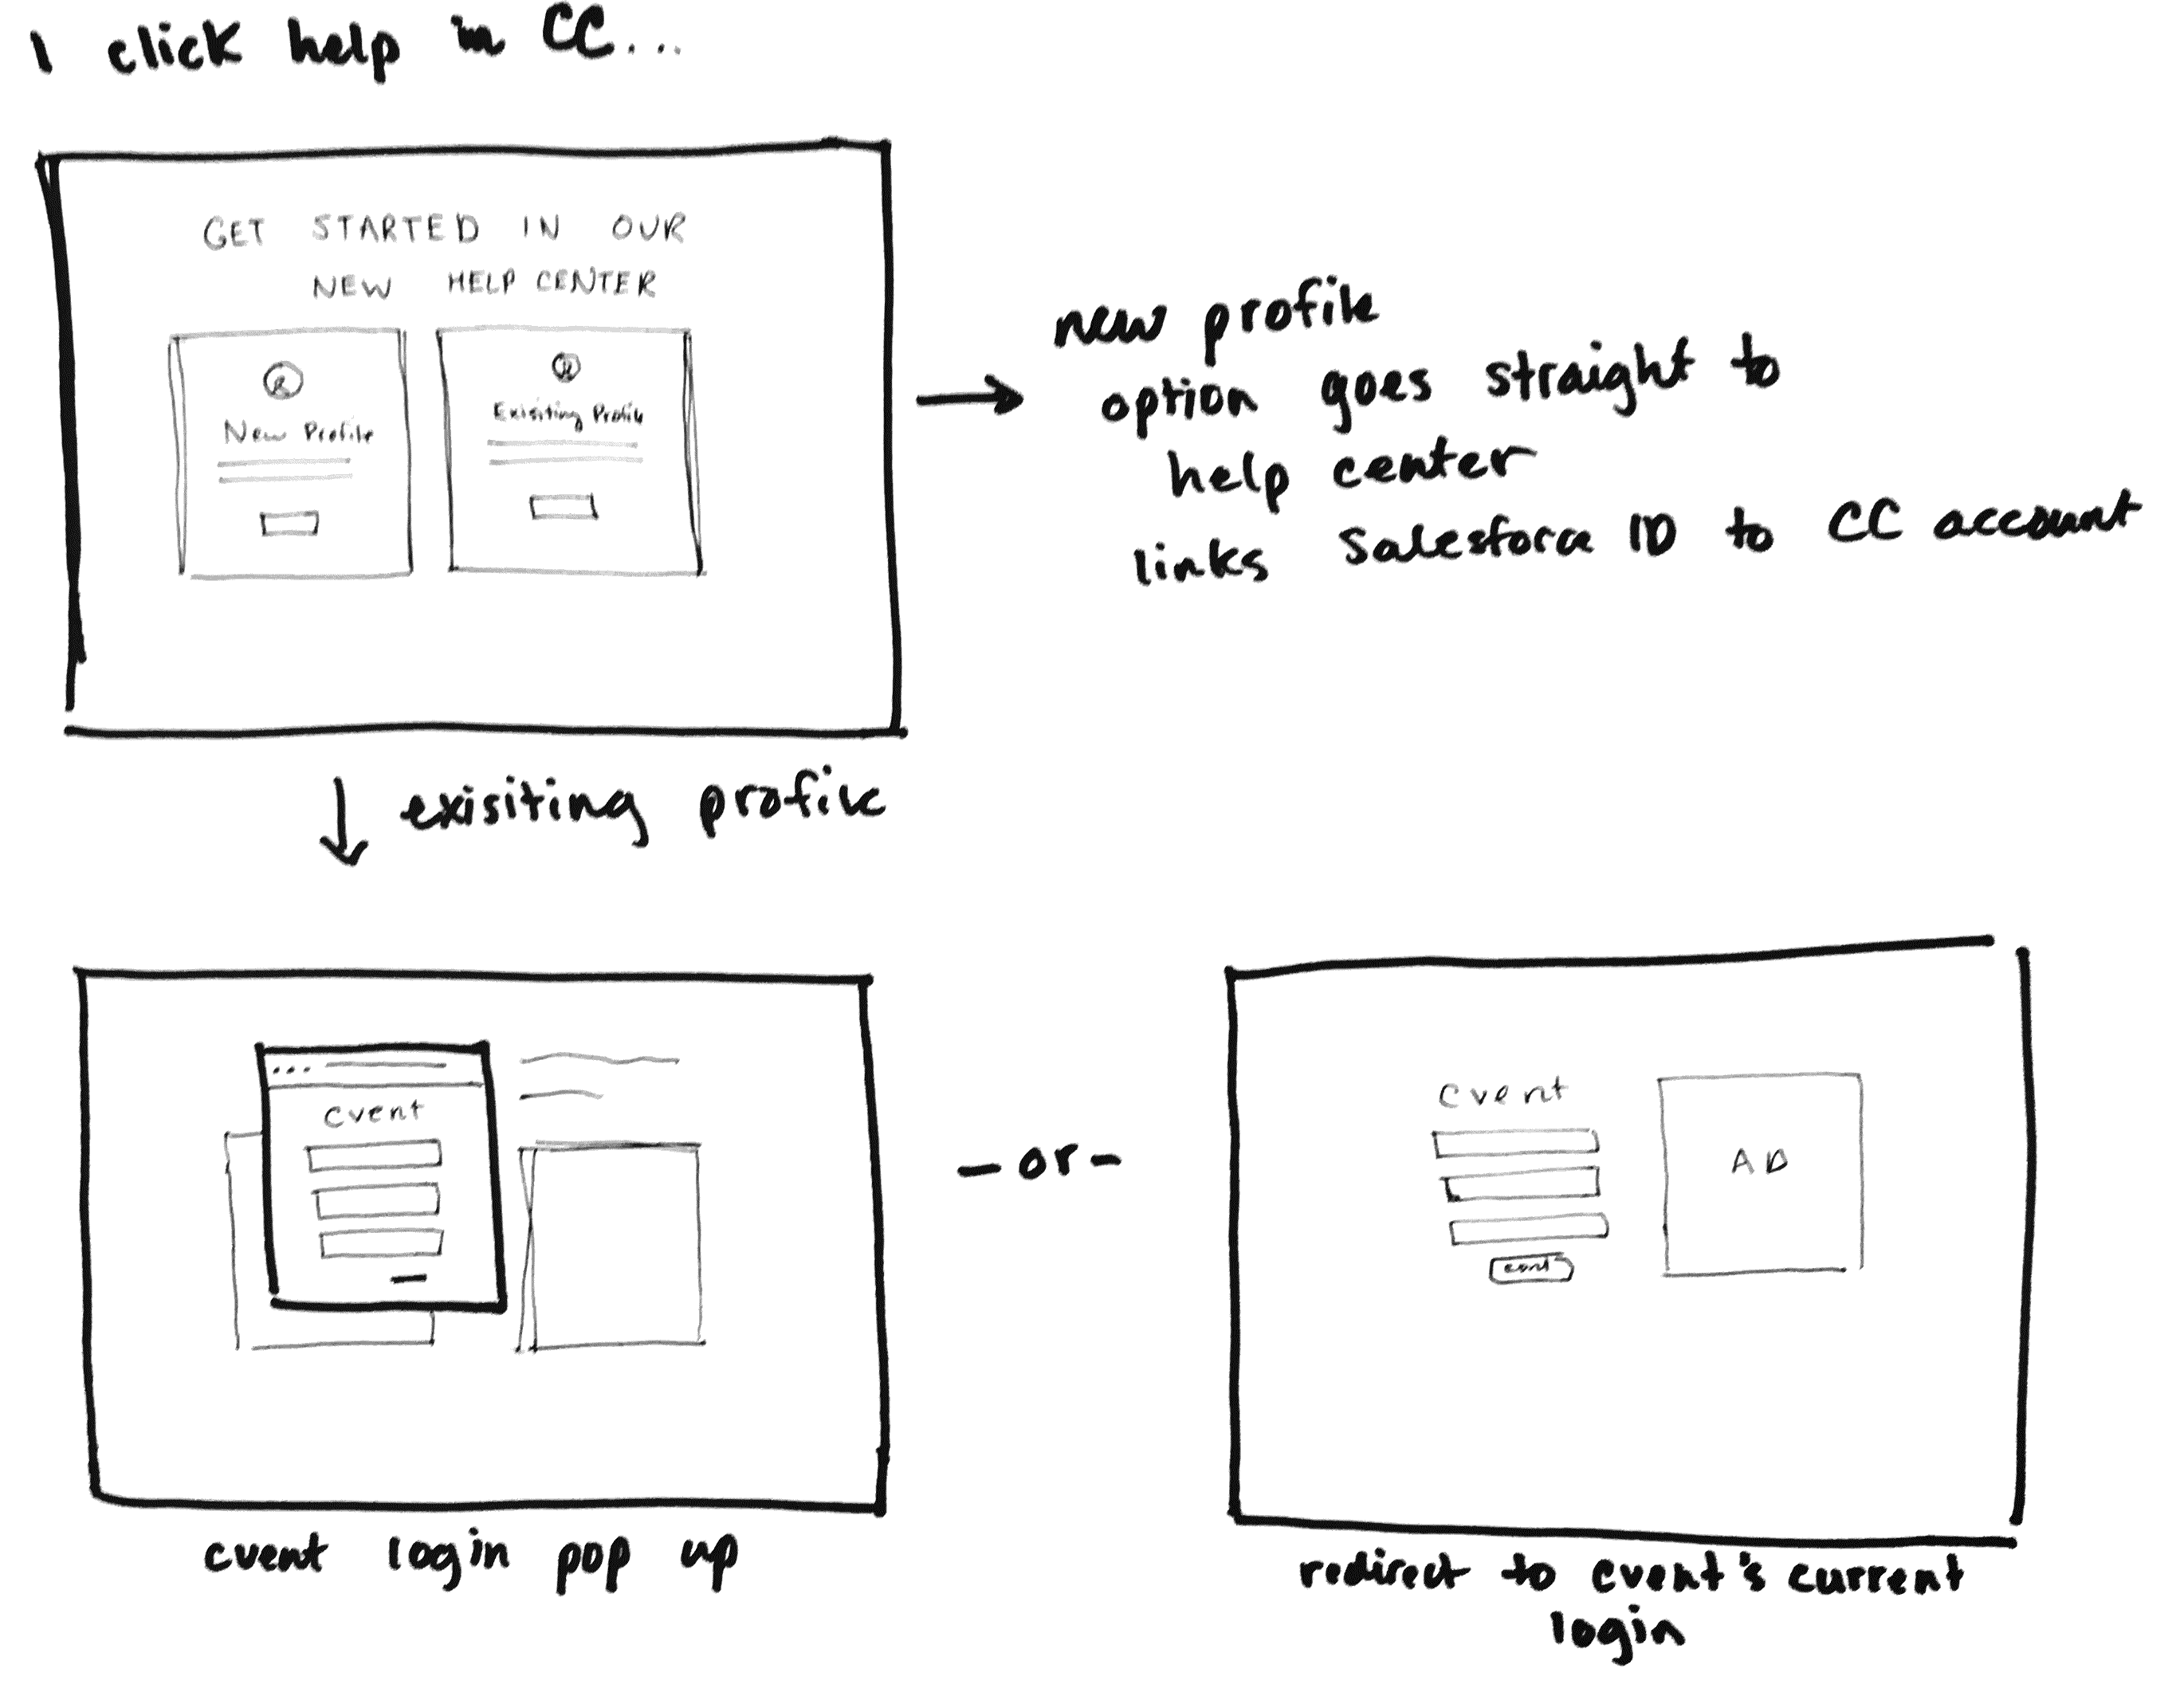 I click help in CC...
GET STARTED IN OUR
NEW HELP CENTER
New Profile
Exisiting Profile
new profile
option goes straight to
help center
links Salesforce ID to CC account
exisiting profile
cvent
- or -
cvent
AD
cont
cvent login pop up
redirect to cvent's current
login